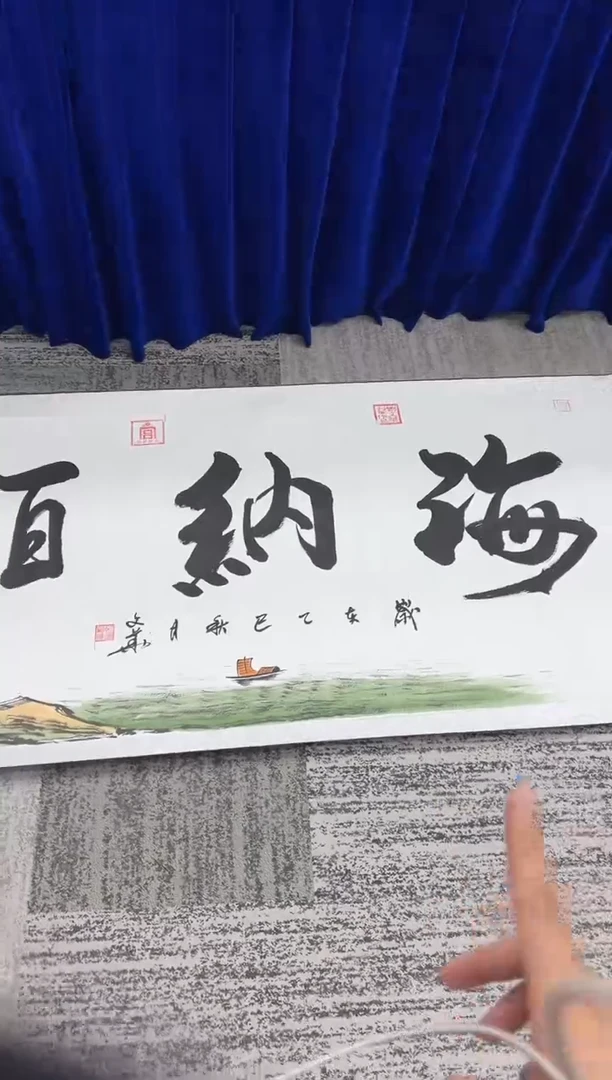 海納百
歲在乙巳秋月